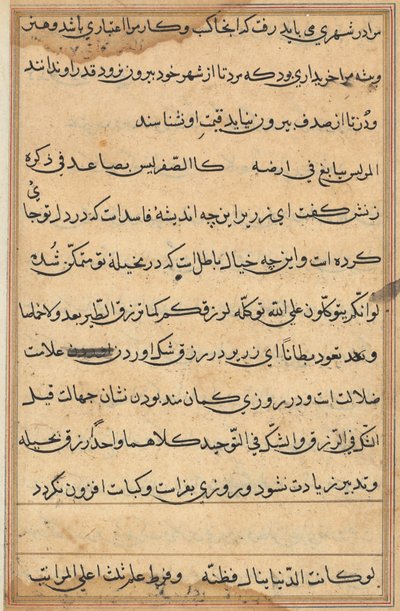 مرا در شهري مي بايد رفت که آنجا کسب و کار مرا اعتباري باشد و هنر
وپیشه مرا خریداري بود که مرد تا از شهر خود بیرون نرود قدر او ندانند
ودُر تا از صدف بیرون نیاید قیمت او شناسند
المر لیس ببالغ في ارضه کا الصّقر لیس بصاعد في ذکره
زنش کفت اي زریر این چه اندیشهٔ فاسد است که در دل تو جاي
کرده است واین چه خیال باطل است که در مخیلهٔ تو متمکن شده
لو انّکم یتوکلون علی الله توکله لرزقکم کما ترزق الطّیر تغدو خماصا
و تعود بطاناً اي زریر در رزق شک اوردن علامت
ضلالت است ودر روزي کمان مند بودن نشان جهالت قیل
الشک في الرّزق والشک في التّوحید کلاهما واحد رزق بحیله
وتدبیر زیادت نشود و روزي بفراست وکیاست افزون نکردد
لو کانت الدّنیا ینال بفطنه وفرط علم نلت اعلی المراتب